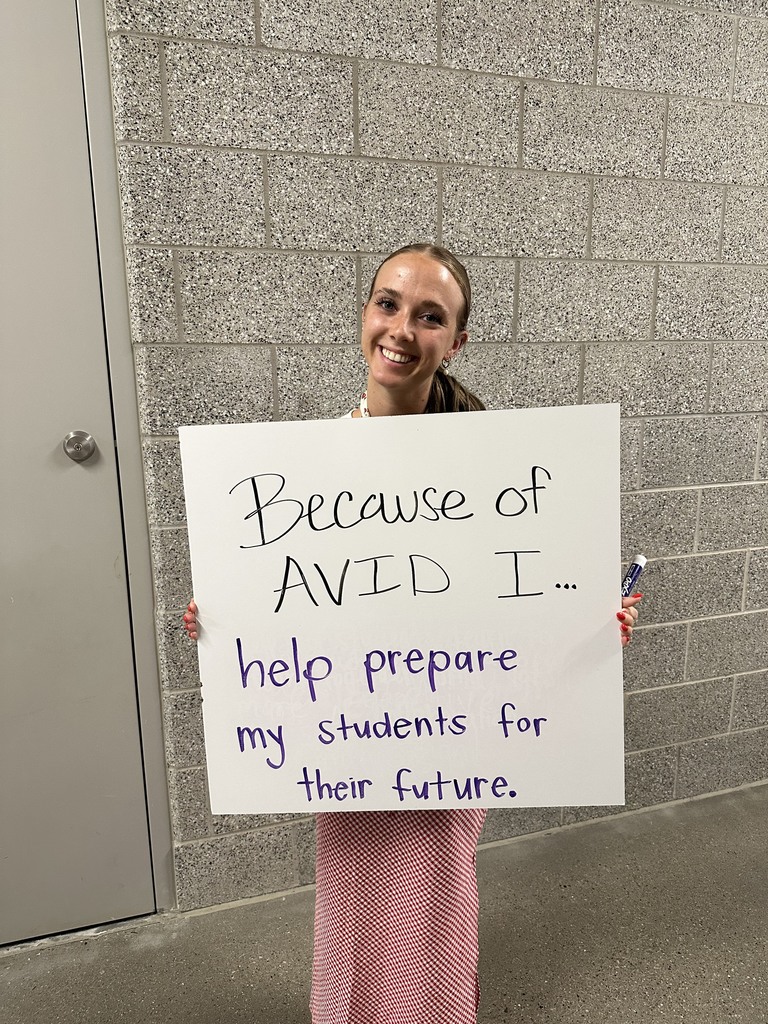 Because of
AVID I...
help prepare
my students for
their future.
EXPO